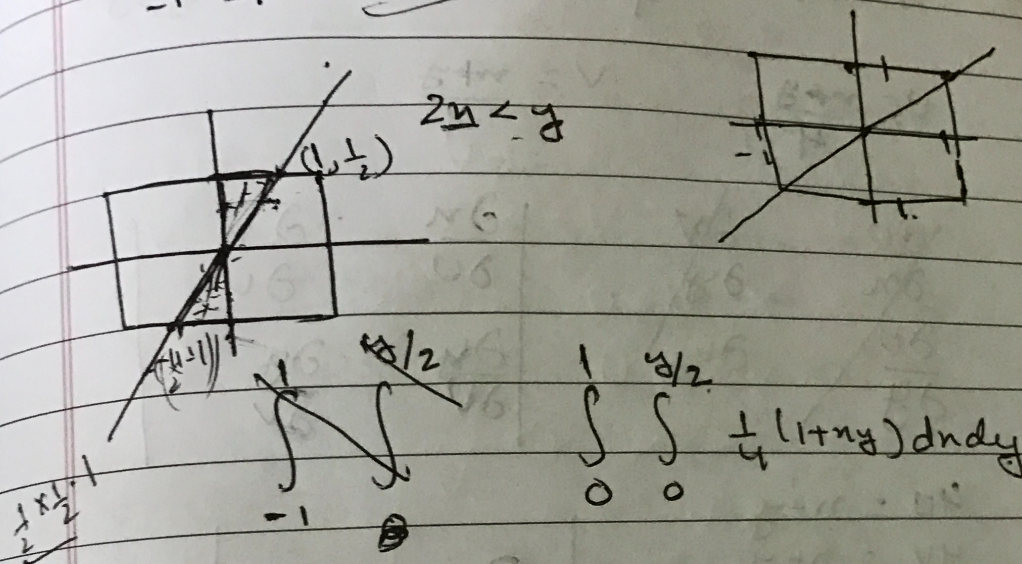 2x < y
(1, 1/2)
1 1
-1
1
(-1/2, -1)
∫_{-1}^{1} ∫_{0}^{y/2}
∫_{0}^{1} ∫_{0}^{y/2} 1/4 (1+xy) dx dy
1/2 × 1/2 · 1